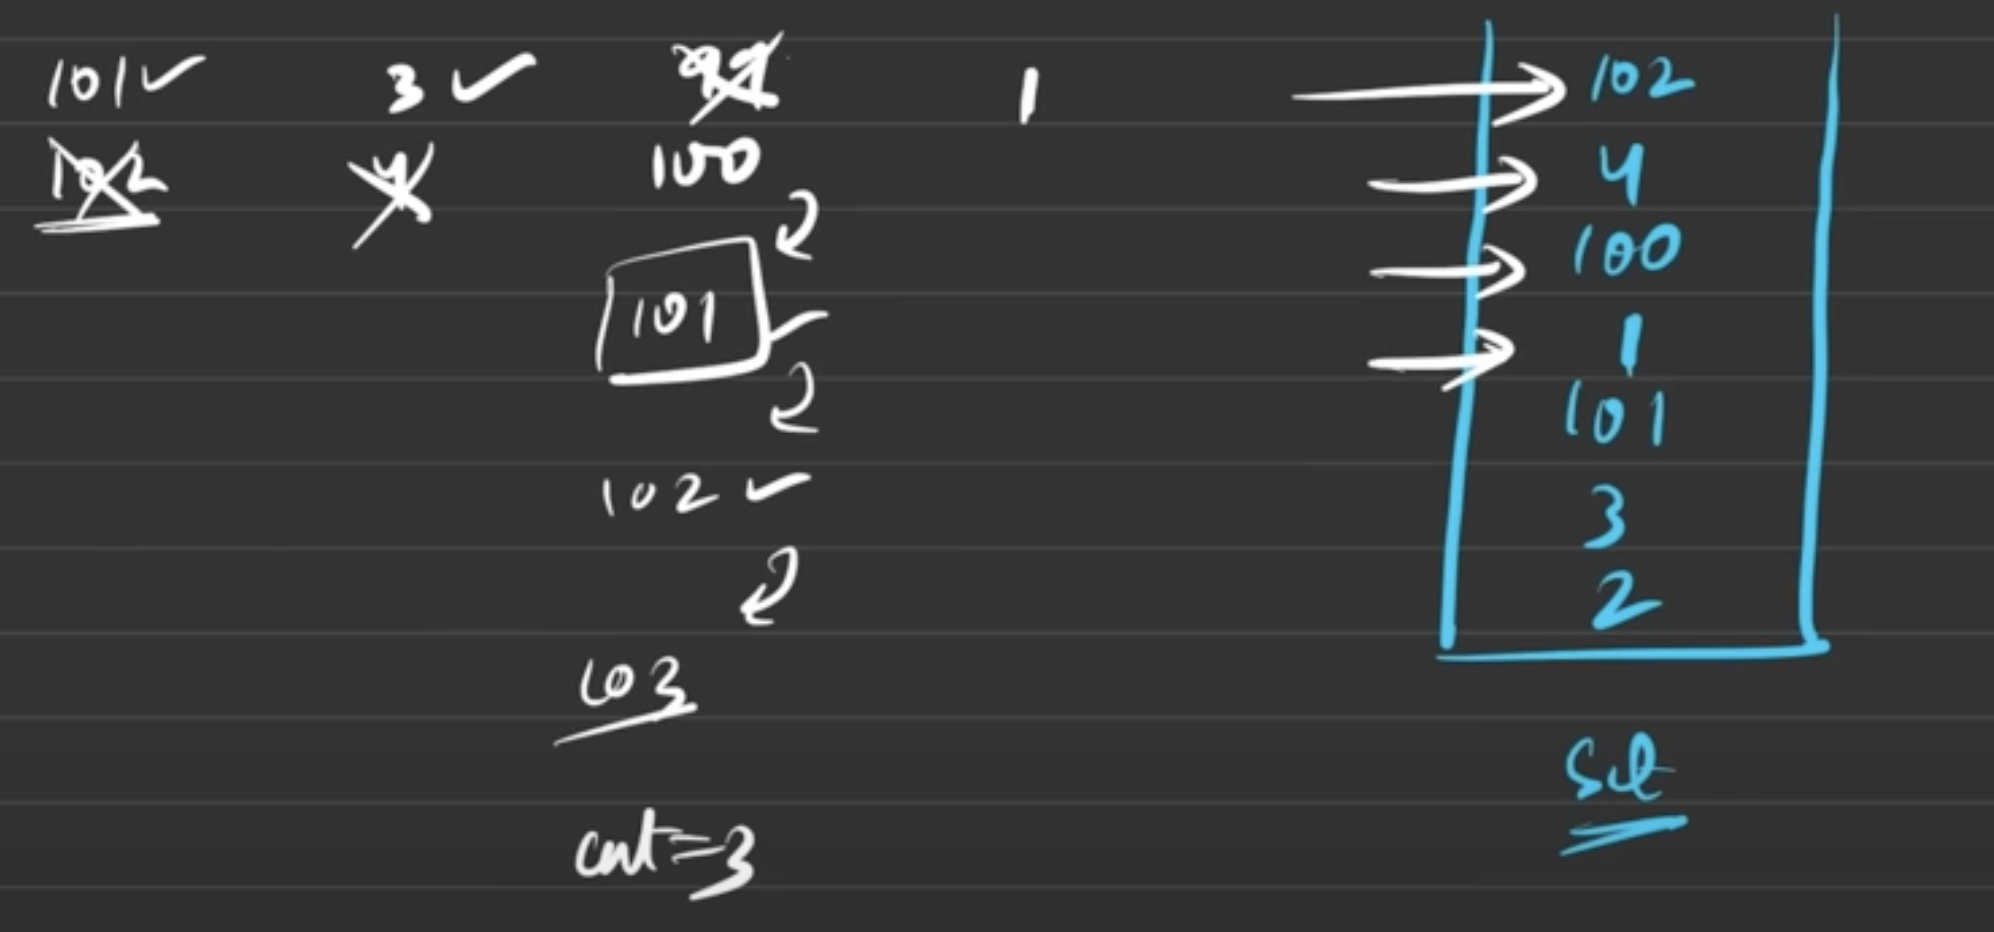 101 3 99 1
102 4 100
101
102
103
cnt=3
102
4
100
1
101
3
2
set